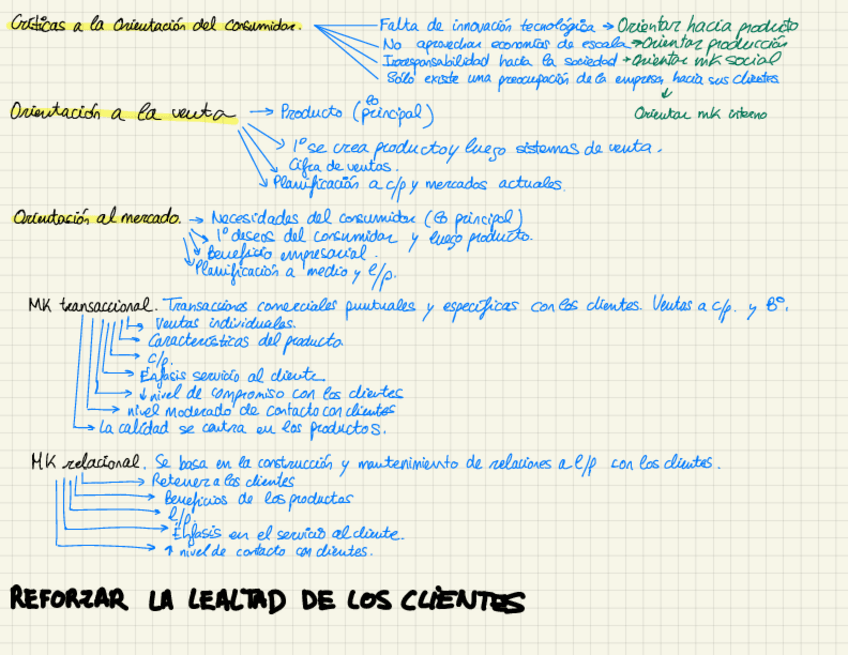 Críticas a la Orientación del consumidor.
Falta de innovación tecnológica → Orientar hacia producto
No aprovechar economías de escala → Orientar producción
Irresponsabilidad hacia la sociedad → Orientar mk social
Sólo existe una preocupación de la empresa hacia sus clientes
↓
Orientar mk interno
Orientación a la venta → Producto (es principal)
1º se crea producto y luego sistemas de venta.
Cifra de ventas.
Planificación a c/p y mercados actuales.
Orientación al mercado. → Necesidades del consumidor (es principal)
1º deseos del consumidor y luego producto.
Beneficio empresarial.
Planificación a medio y l/p.
MK transaccional. Transacciones comerciales puntuales y específicas con los clientes. Ventas a c/p. y Bº.
Ventas individuales.
Características del producto.
c/p.
Énfasis servicio al cliente
↓ nivel de compromiso con los clientes
nivel moderado de contacto con clientes
La calidad se centra en los productos.
MK relacional. Se basa en la construcción y mantenimiento de relaciones a l/p con los clientes.
Retener a los clientes
Beneficios de los productos
l/p.
Énfasis en el servicio al cliente.
↑ nivel de contacto con clientes.
REFORZAR LA LEALTAD DE LOS CLIENTES